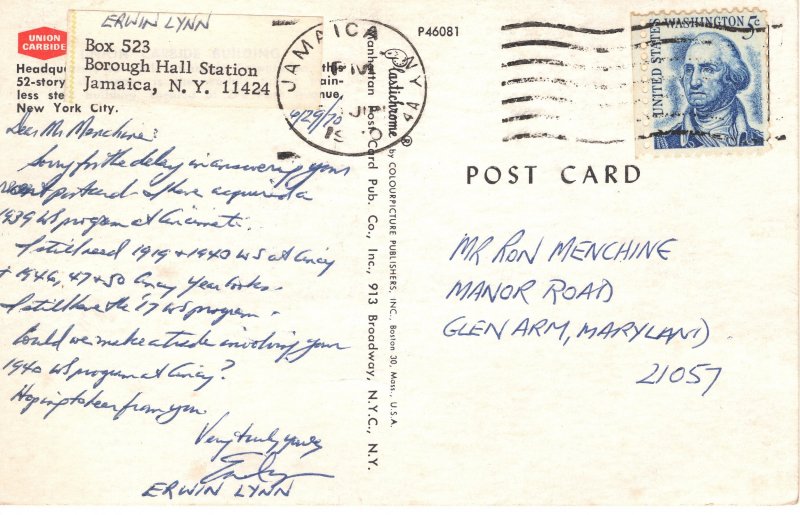 ERWIN LYNN
Box 523
Borough Hall Station
Jamaica, N. Y. 11424
UNION
CARBIDE
Headqu this
52-story ain-
less ste nue,
New York City.
Dear Mr Menchine:
Sorry for the delay in answering your
recent postcard. I have acquired a
1939 WS program at Cincinnati.
I still need 1919 + 1940 WS at Cincy
+ 1946, 47 + 50 Cincy Year books.
I still have the '17 WS program.
Could we make a trade involving your
1940 WS program at Cincy?
Hoping to hear from you.
Very truly yours
ERWIN LYNN
JAMAICA, NY
PM
6/29/70
19
P46081
Plastichrome® by COLOURPICTURE PUBLISHERS, INC., Boston 30, Mass., U.S.A.
Manhattan Post Card Pub. Co., Inc., 913 Broadway, N.Y.C., N.Y.
WASHINGTON 5c
UNITED STATES
POST CARD
MR RON MENCHINE
MANOR ROAD
GLEN ARM, MARYLAND
21057